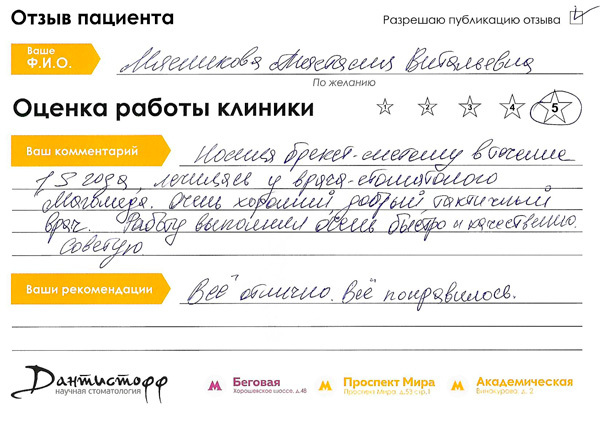 Отзыв пациента
Разрешаю публикацию отзыва
Ваше Ф.И.О.
Мясникова Анастасия Витальевна
По желанию
Оценка работы клиники
1 2 3 4 5
Ваш комментарий
Носила брекет-систему в течение
1,5 года, лечилась у врача-стоматолога
Магомеда. Очень хороший, добрый тактичный
врач. Работу выполнил очень быстро и качественно.
Советую
Ваши рекомендации
Всё отлично. Всё понравилось.
Дантистофф
научная стоматология
М Беговая
Хорошевское шоссе, д.48
М Проспект Мира
Проспект Мира, д.53 стр.1
М Академическая
Винокурова, д. 2